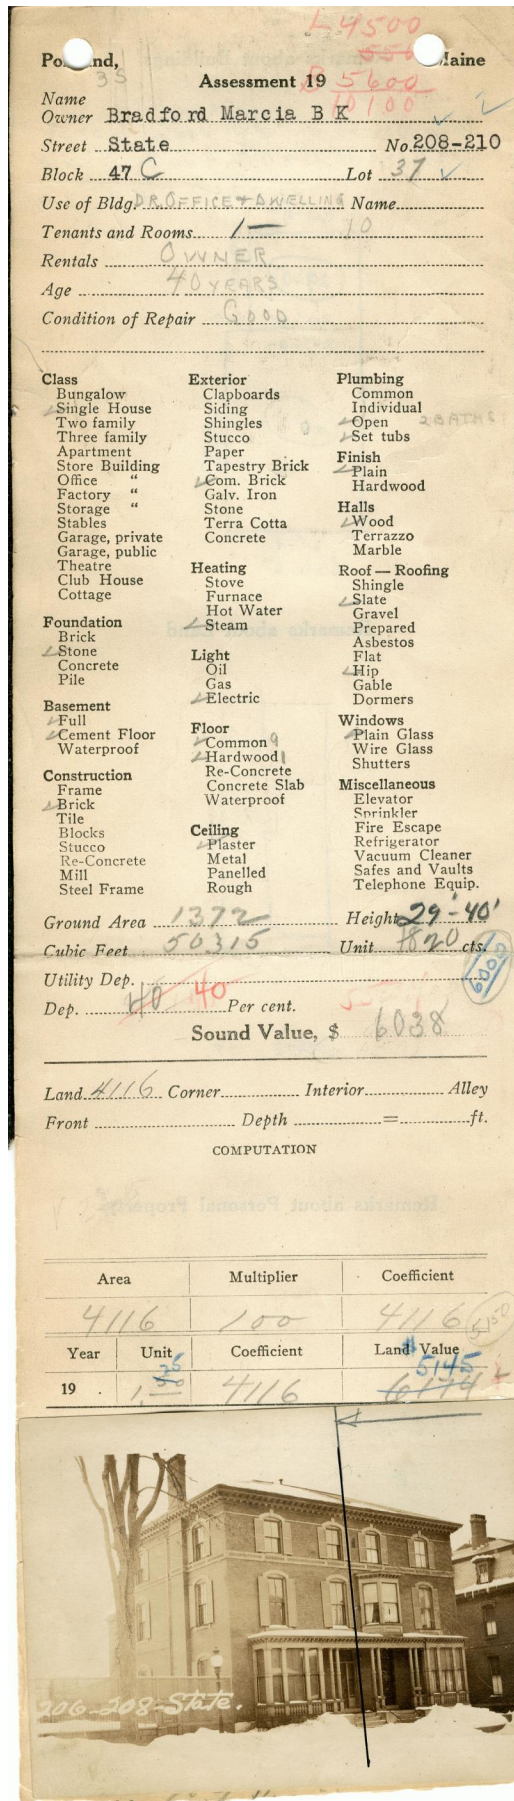 L 4500
550
Po nd, Maine
35
Assessment 19 B 5600
10100
Name
Owner Bradford Marcia B K
Street State No. 208-210
Block 47 C Lot 37
Use of Bldg. DR. OFFICE & DWELLING Name
Tenants and Rooms 1 — 10
Rentals OWNER
Age 40 YEARS
Condition of Repair GOOD
Class
Bungalow
Single House
Two family
Three family
Apartment
Store Building
Office "
Factory "
Storage "
Stables
Garage, private
Garage, public
Theatre
Club House
Cottage
Foundation
Brick
Stone
Concrete
Pile
Basement
Full
Cement Floor
Waterproof
Construction
Frame
Brick
Tile
Blocks
Stucco
Re-Concrete
Mill
Steel Frame
Exterior
Clapboards
Siding
Shingles
Stucco
Paper
Tapestry Brick
Com. Brick
Galv. Iron
Stone
Terra Cotta
Concrete
Heating
Stove
Furnace
Hot Water
Steam
Light
Oil
Gas
Electric
Floor
Common 9
Hardwood 1
Re-Concrete
Concrete Slab
Waterproof
Ceiling
Plaster
Metal
Panelled
Rough
Plumbing
Common
Individual
Open 2 BATHS
Set tubs
Finish
Plain
Hardwood
Halls
Wood
Terrazzo
Marble
Roof — Roofing
Shingle
Slate
Gravel
Prepared
Asbestos
Flat
Hip
Gable
Dormers
Windows
Plain Glass
Wire Glass
Shutters
Miscellaneous
Elevator
Sprinkler
Fire Escape
Refrigerator
Vacuum Cleaner
Safes and Vaults
Telephone Equip.
Ground Area 1372 Height 29'-40'
Cubic Feet 50315 Unit 20 cts.
6000
Utility Dep.
Dep. 40 40 Per cent.
Sound Value, $ 6038
Land 4116 Corner Interior Alley
Front Depth = ft.
COMPUTATION
Area Multiplier Coefficient
4116 100 4116 5150
Year Unit Coefficient Land Value
25 $ 5145
19 . 1.50 4116 6174
206-208-State.